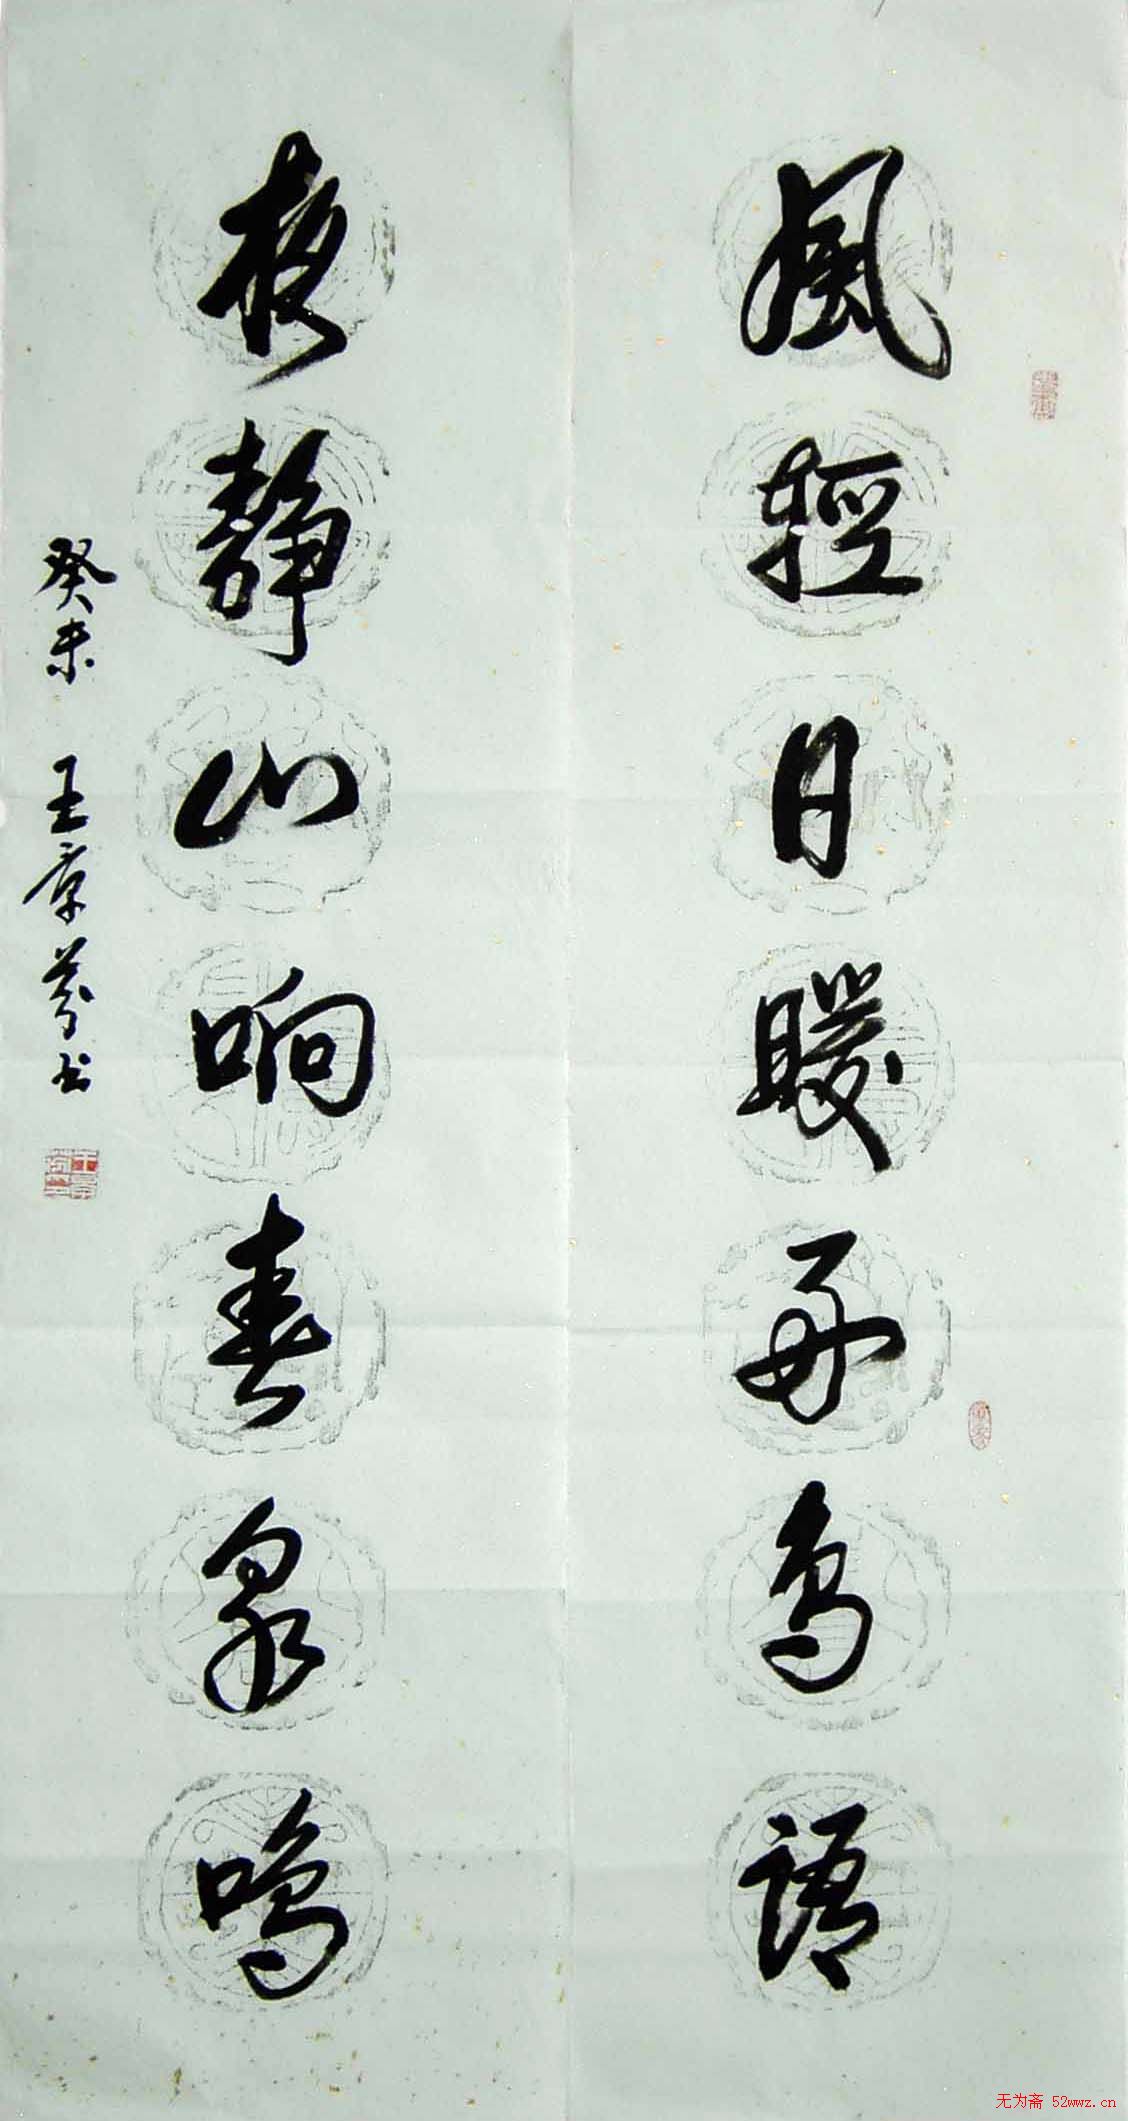 風輕日暖好鳥語
夜靜山响春泉鳴
癸未 王章芬书
无为斋 52wwz.cn